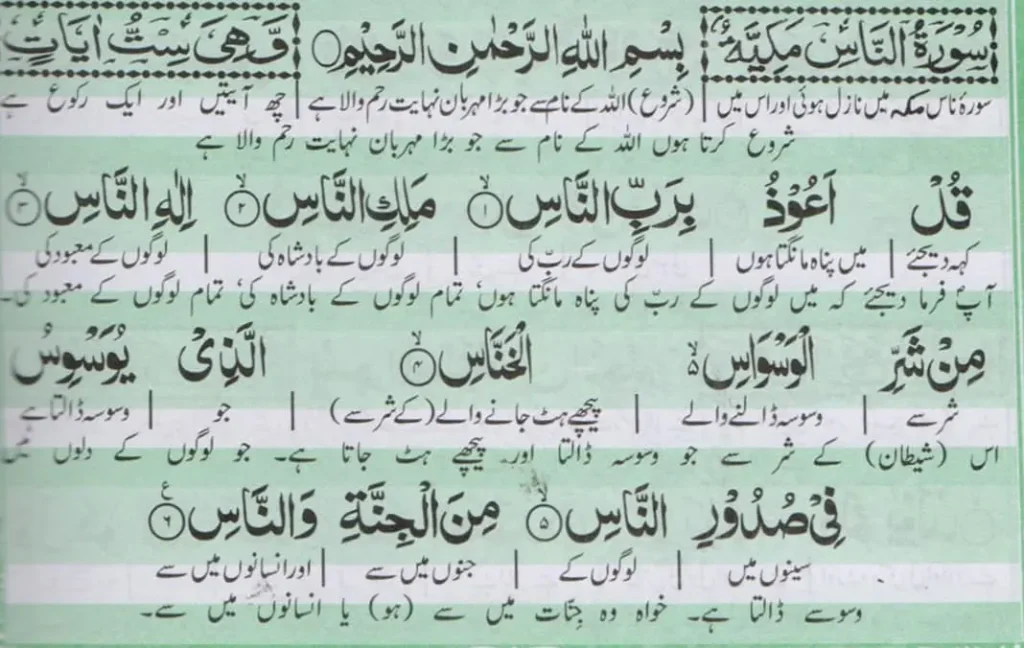 سُوْرَةُ النَّاسِ مَكِّيَّةٌ بِسْمِ اللهِ الرَّحْمٰنِ الرَّحِيْمِ وَّهِىَ سِتُّ اٰيَاتٍ
سورۂ ناس مکہ میں نازل ہوئی اور اس میں | (شروع) اللہ کے نام سے جو بڑا مہربان نہایت رحم والا ہے | چھ آیتیں اور ایک رکوع ہے
شروع کرتا ہوں اللہ کے نام سے جو بڑا مہربان نہایت رحم والا ہے
قُلْ اَعُوْذُ بِرَبِّ النَّاسِ ۙ﴿۱﴾ مَلِكِ النَّاسِ ۙ﴿۲﴾ اِلٰهِ النَّاسِ ۙ﴿۳﴾
کہہ دیجئے | میں پناہ مانگتا ہوں | لوگوں کے ربّ کی | لوگوں کے بادشاہ کی | لوگوں کے معبود کی
آپؐ فرما دیجئے کہ میں لوگوں کے ربّ کی پناہ مانگتا ہوں، تمام لوگوں کے بادشاہ کی، تمام لوگوں کے معبود کی۔
مِنْ شَرِّ الْوَسْوَاسِ ۙ الْخَنَّاسِ ۙ﴿۴﴾ الَّذِىْ يُوَسْوِسُ
شر سے | وسوسہ ڈالنے والے | پیچھے ہٹ جانے والے (کے شر سے) | جو | وسوسہ ڈالتا ہے
اس (شیطان) کے شر سے جو وسوسہ ڈالتا اور پیچھے ہٹ جاتا ہے۔ جو لوگوں کے دلوں میں
فِىْ صُدُوْرِ النَّاسِ ۙ﴿۵﴾ مِنَ الْجِنَّةِ وَالنَّاسِ ﴿۶﴾ ع
سینوں میں | لوگوں کے | جنوں میں سے | اور انسانوں میں سے
وسوسے ڈالتا ہے۔ خواہ وہ جِنّات میں سے (ہو) یا انسانوں میں سے۔